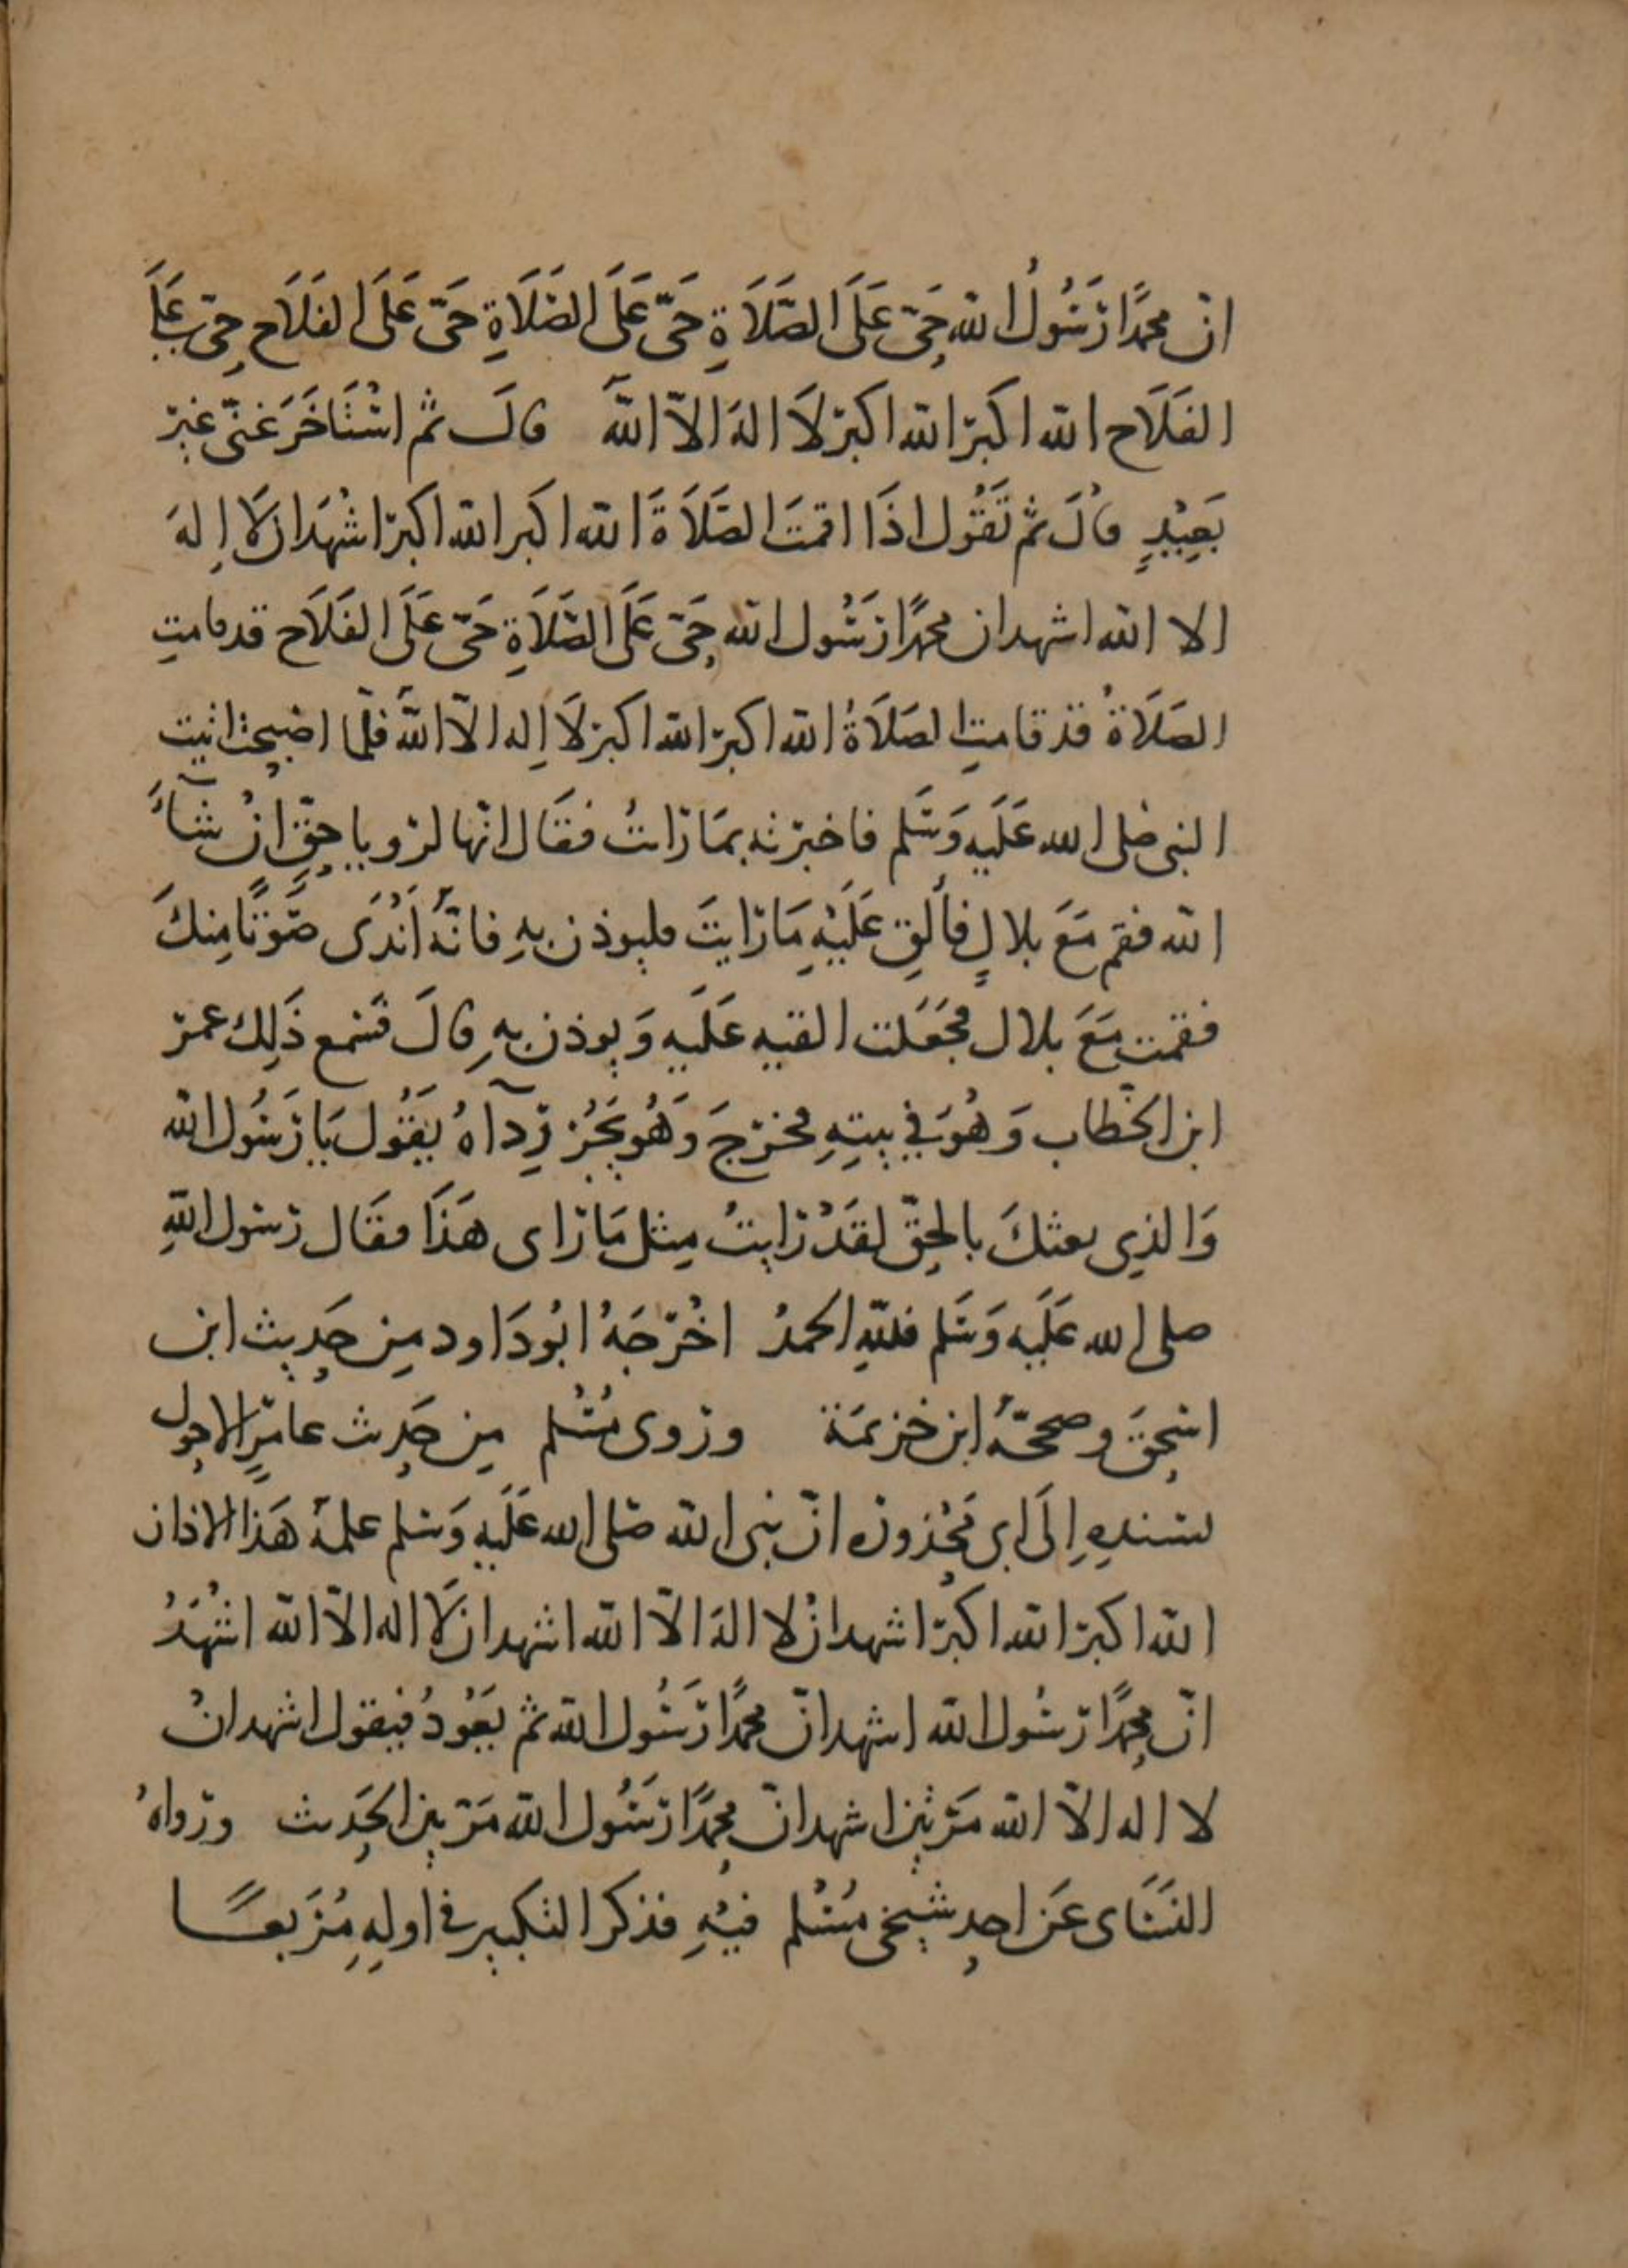 ان محمدًا رَسُولُ الله حَيّ عَلَى الصَّلَاةِ حَيّ عَلَى الصَّلَاةِ حَيّ عَلَى الفَلَاح حَيّ عَلَى
الفَلَاح الله اكبَر الله اكبَر لَا الهَ الاّ اللهُ قالَ ثم اسْتَاخَرَ عَنّي غير
بَعِيْدٍ قالَ ثم تَقُول اذَا اقمتَ الصَّلَاةَ الله اكبر الله اكبر اشْهَد ان لَا اِلهَ
الا الله اشهد ان محمدًا رَسُول الله حَيّ عَلَى الصَّلَاةِ حَيّ عَلَى الفَلَاح قد قامتِ
الصَلَاةُ قد قامتِ الصَلَاةُ الله اكبر الله اكبر لَا اِله الاّ اللهُ فلمّا اصْبحتُ اتيت
النبي صلى الله عَلَيه وَسَلم فاخبرته بمَا رَاتُ فقَال انّها لرويا حقٍّ انْ شآءَ
الله فقم مَعَ بلالٍ فألقِ عَلَيْهِ مَا رَايتَ فليوذن بهِ فانّهُ اَنْدَى صَوْتًا مِنكَ
فقمت مَعَ بلال فجَعَلت القيه عَلَيه وَيوذن بهِ قالَ فسَمع ذَلِك عمر
ابن الخطّاب وَهُوَ في بيتِهِ فخرَجَ وَهُو يَجُرّ رِدآءهُ يَقُول يَا رَسُول الله
وَالذِي بعثكَ بالحقّ لقَدْ رَايتُ مِثل مَا رَاى هَذَا فقَال رَسُول اللهِ
صلى الله عَلَيه وَسَلم فللهِ الحمدُ اخْرَجَهُ ابُو دَاود مِن حَدِيث ابن
اسحقَ وصححّهُ ابن خزيمَة ورَوى مُسْلم مِن حَدِيث عَامِرٍ الاحول
بسَندِهِ اِلَى ابي مَحْذُورَه انّ نبي الله صَلى الله عَلَيهِ وَسَلم علمهُ هَذا الاذان
الله اكبر الله اكبَر اشهد انْ لا الهَ الاّ الله اشهد ان لَا اله الاّ الله اشْهَدُ
انّ محمدًا رَسُول الله اشهد انّ محمدًا رَسُول الله ثم يَعُودُ فيقول اشهد انْ
لا اله الاّ الله مَرّتين اشهد انّ محمدًا رَسُول الله مَرّتين الحَدِيث ورَواهُ
النَسَاى عَن احد شيخي مُسْلم فيْهِ فذكر التكبير في اولهِ مُرَبعًا